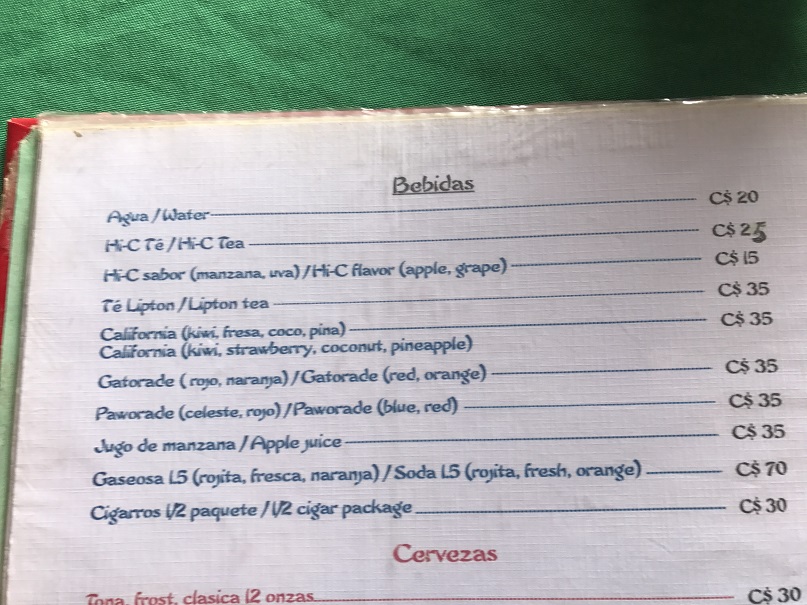 Bebidas
Agua / Water C$ 20
Hi-C Té / Hi-C Tea C$ 25
Hi-C sabor (manzana, uva) / Hi-C flavor (apple, grape) C$ 15
Té Lipton / Lipton tea C$ 35
California (kiwi, fresa, coco, pina) C$ 35
California (kiwi, strawberry, coconut, pineapple)
Gatorade ( rojo, naranja) / Gatorade (red, orange) C$ 35
Paworade (celeste, rojo) / Paworade (blue, red) C$ 35
Jugo de manzana / Apple juice C$ 35
Gaseosa 1.5 (rojita, fresca, naranja) / Soda 1.5 (rojita, fresh, orange) C$ 70
Cigarros 1/2 paquete / 1/2 cigar package C$ 30
Cervezas
Tona, frost, clasica 12 onzas C$ 30